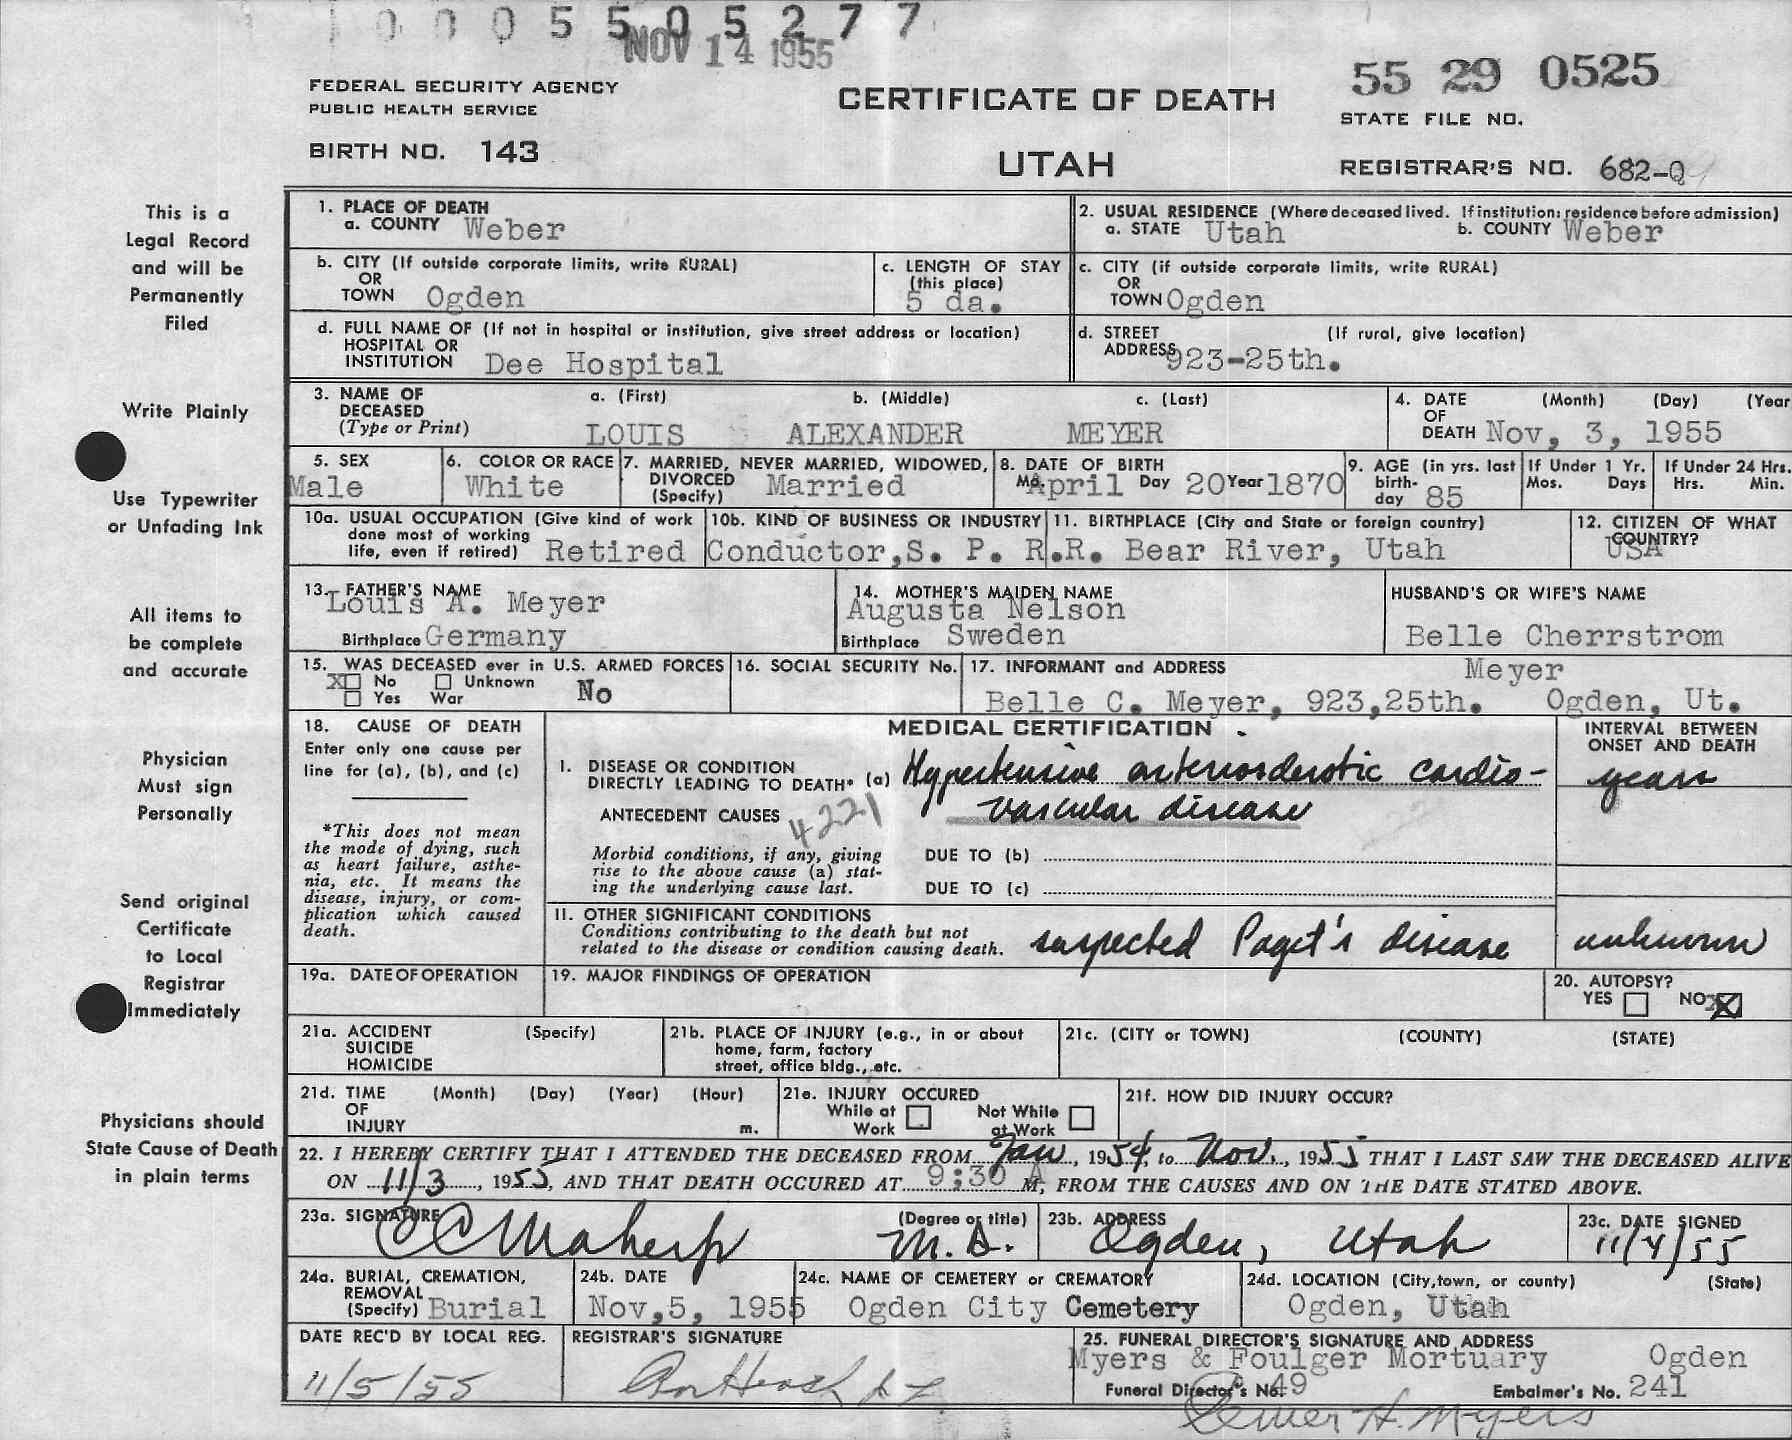 0 0 0 5 5 0 5 2 7 7
NOV 14 1955
FEDERAL SECURITY AGENCY
PUBLIC HEALTH SERVICE
BIRTH NO. 143
CERTIFICATE OF DEATH
UTAH
55 29 0525
STATE FILE NO.
REGISTRAR'S NO. 682-Q
This is a
Legal Record
and will be
Permanently
Filed
Write Plainly
Use Typewriter
or Unfading Ink
All items to
be complete
and accurate
Physician
Must sign
Personally
Send original
Certificate
to Local
Registrar
Immediately
Physicians should
State Cause of Death
in plain terms
1. PLACE OF DEATH
a. COUNTY Weber
2. USUAL RESIDENCE (Where deceased lived. If institution: residence before admission)
a. STATE Utah b. COUNTY Weber
b. CITY (If outside corporate limits, write RURAL)
OR
TOWN Ogden
c. LENGTH OF STAY
(this place)
5 da.
c. CITY (if outside corporate limits, write RURAL)
OR
TOWN Ogden
d. FULL NAME OF (If not in hospital or institution, give street address or location)
HOSPITAL OR
INSTITUTION Dee Hospital
d. STREET (If rural, give location)
ADDRESS 923-25th.
3. NAME OF DECEASED
(Type or Print)
a. (First) b. (Middle) c. (Last)
LOUIS ALEXANDER MEYER
4. DATE (Month) (Day) (Year
OF
DEATH Nov, 3, 1955
5. SEX
Male
6. COLOR OR RACE
White
7. MARRIED, NEVER MARRIED, WIDOWED,
DIVORCED
(Specify) Married
8. DATE OF BIRTH
Mo. April Day 20 Year 1870
9. AGE (in yrs. last
birth-
day 85
If Under 1 Yr.
Mos. Days
If Under 24 Hrs.
Hrs. Min.
10a. USUAL OCCUPATION (Give kind of work
done most of working
life, even if retired) Retired
10b. KIND OF BUSINESS OR INDUSTRY
Conductor, S. P. R.R.
11. BIRTHPLACE (City and State or foreign country)
Bear River, Utah
12. CITIZEN OF WHAT
COUNTRY?
USA
13. FATHER'S NAME
Louis A. Meyer
Birthplace Germany
14. MOTHER'S MAIDEN NAME
Augusta Nelson
Birthplace Sweden
HUSBAND'S OR WIFE'S NAME
Belle Cherrstrom
Meyer
15. WAS DECEASED ever in U.S. ARMED FORCES
X No Unknown No
Yes War
16. SOCIAL SECURITY No.
17. INFORMANT and ADDRESS
Belle C. Meyer, 923,25th. Ogden, Ut.
18. CAUSE OF DEATH
Enter only one cause per
line for (a), (b), and (c)
*This does not mean
the mode of dying, such
as heart failure, asthe-
nia, etc. It means the
disease, injury, or com-
plication which caused
death.
MEDICAL CERTIFICATION
I. DISEASE OR CONDITION
DIRECTLY LEADING TO DEATH* (a) Hypertensive arteriosclerotic cardio-
vascular disease
ANTECEDENT CAUSES
4221
Morbid conditions, if any, giving
rise to the above cause (a) stat-
ing the underlying cause last.
DUE TO (b)
DUE TO (c)
INTERVAL BETWEEN
ONSET AND DEATH
years
II. OTHER SIGNIFICANT CONDITIONS
Conditions contributing to the death but not
related to the disease or condition causing death. suspected Paget's disease
unknown
19a. DATE OF OPERATION
19. MAJOR FINDINGS OF OPERATION
20. AUTOPSY?
YES NO X
21a. ACCIDENT (Specify)
SUICIDE
HOMICIDE
21b. PLACE OF INJURY (e.g., in or about
home, farm, factory
street, office bldg., etc.
21c. (CITY or TOWN) (COUNTY) (STATE)
21d. TIME (Month) (Day) (Year) (Hour)
OF
INJURY m.
21e. INJURY OCCURED
While at Work
Not While at Work
21f. HOW DID INJURY OCCUR?
22. I HEREBY CERTIFY THAT I ATTENDED THE DECEASED FROM Jan, 1954, to Nov., 1955 THAT I LAST SAW THE DECEASED ALIVE
ON 11/3, 1955, AND THAT DEATH OCCURED AT 9:30 A M, FROM THE CAUSES AND ON THE DATE STATED ABOVE.
23a. SIGNATURE (Degree or title)
M.D.
23b. ADDRESS
Ogden, Utah
23c. DATE SIGNED
11/4/55
24a. BURIAL, CREMATION,
REMOVAL
(Specify) Burial
24b. DATE
Nov,5, 1955
24c. NAME OF CEMETERY or CREMATORY
Ogden City Cemetery
24d. LOCATION (City, town, or county) (State)
Ogden, Utah
DATE REC'D BY LOCAL REG.
11/5/55
REGISTRAR'S SIGNATURE
25. FUNERAL DIRECTOR'S SIGNATURE AND ADDRESS
Myers & Foulger Mortuary Ogden
Funeral Director's No. 49 Embalmer's No. 241
H. Myers